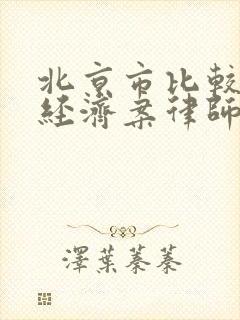 北京市比較
經濟案律師
澤葉蓁蓁